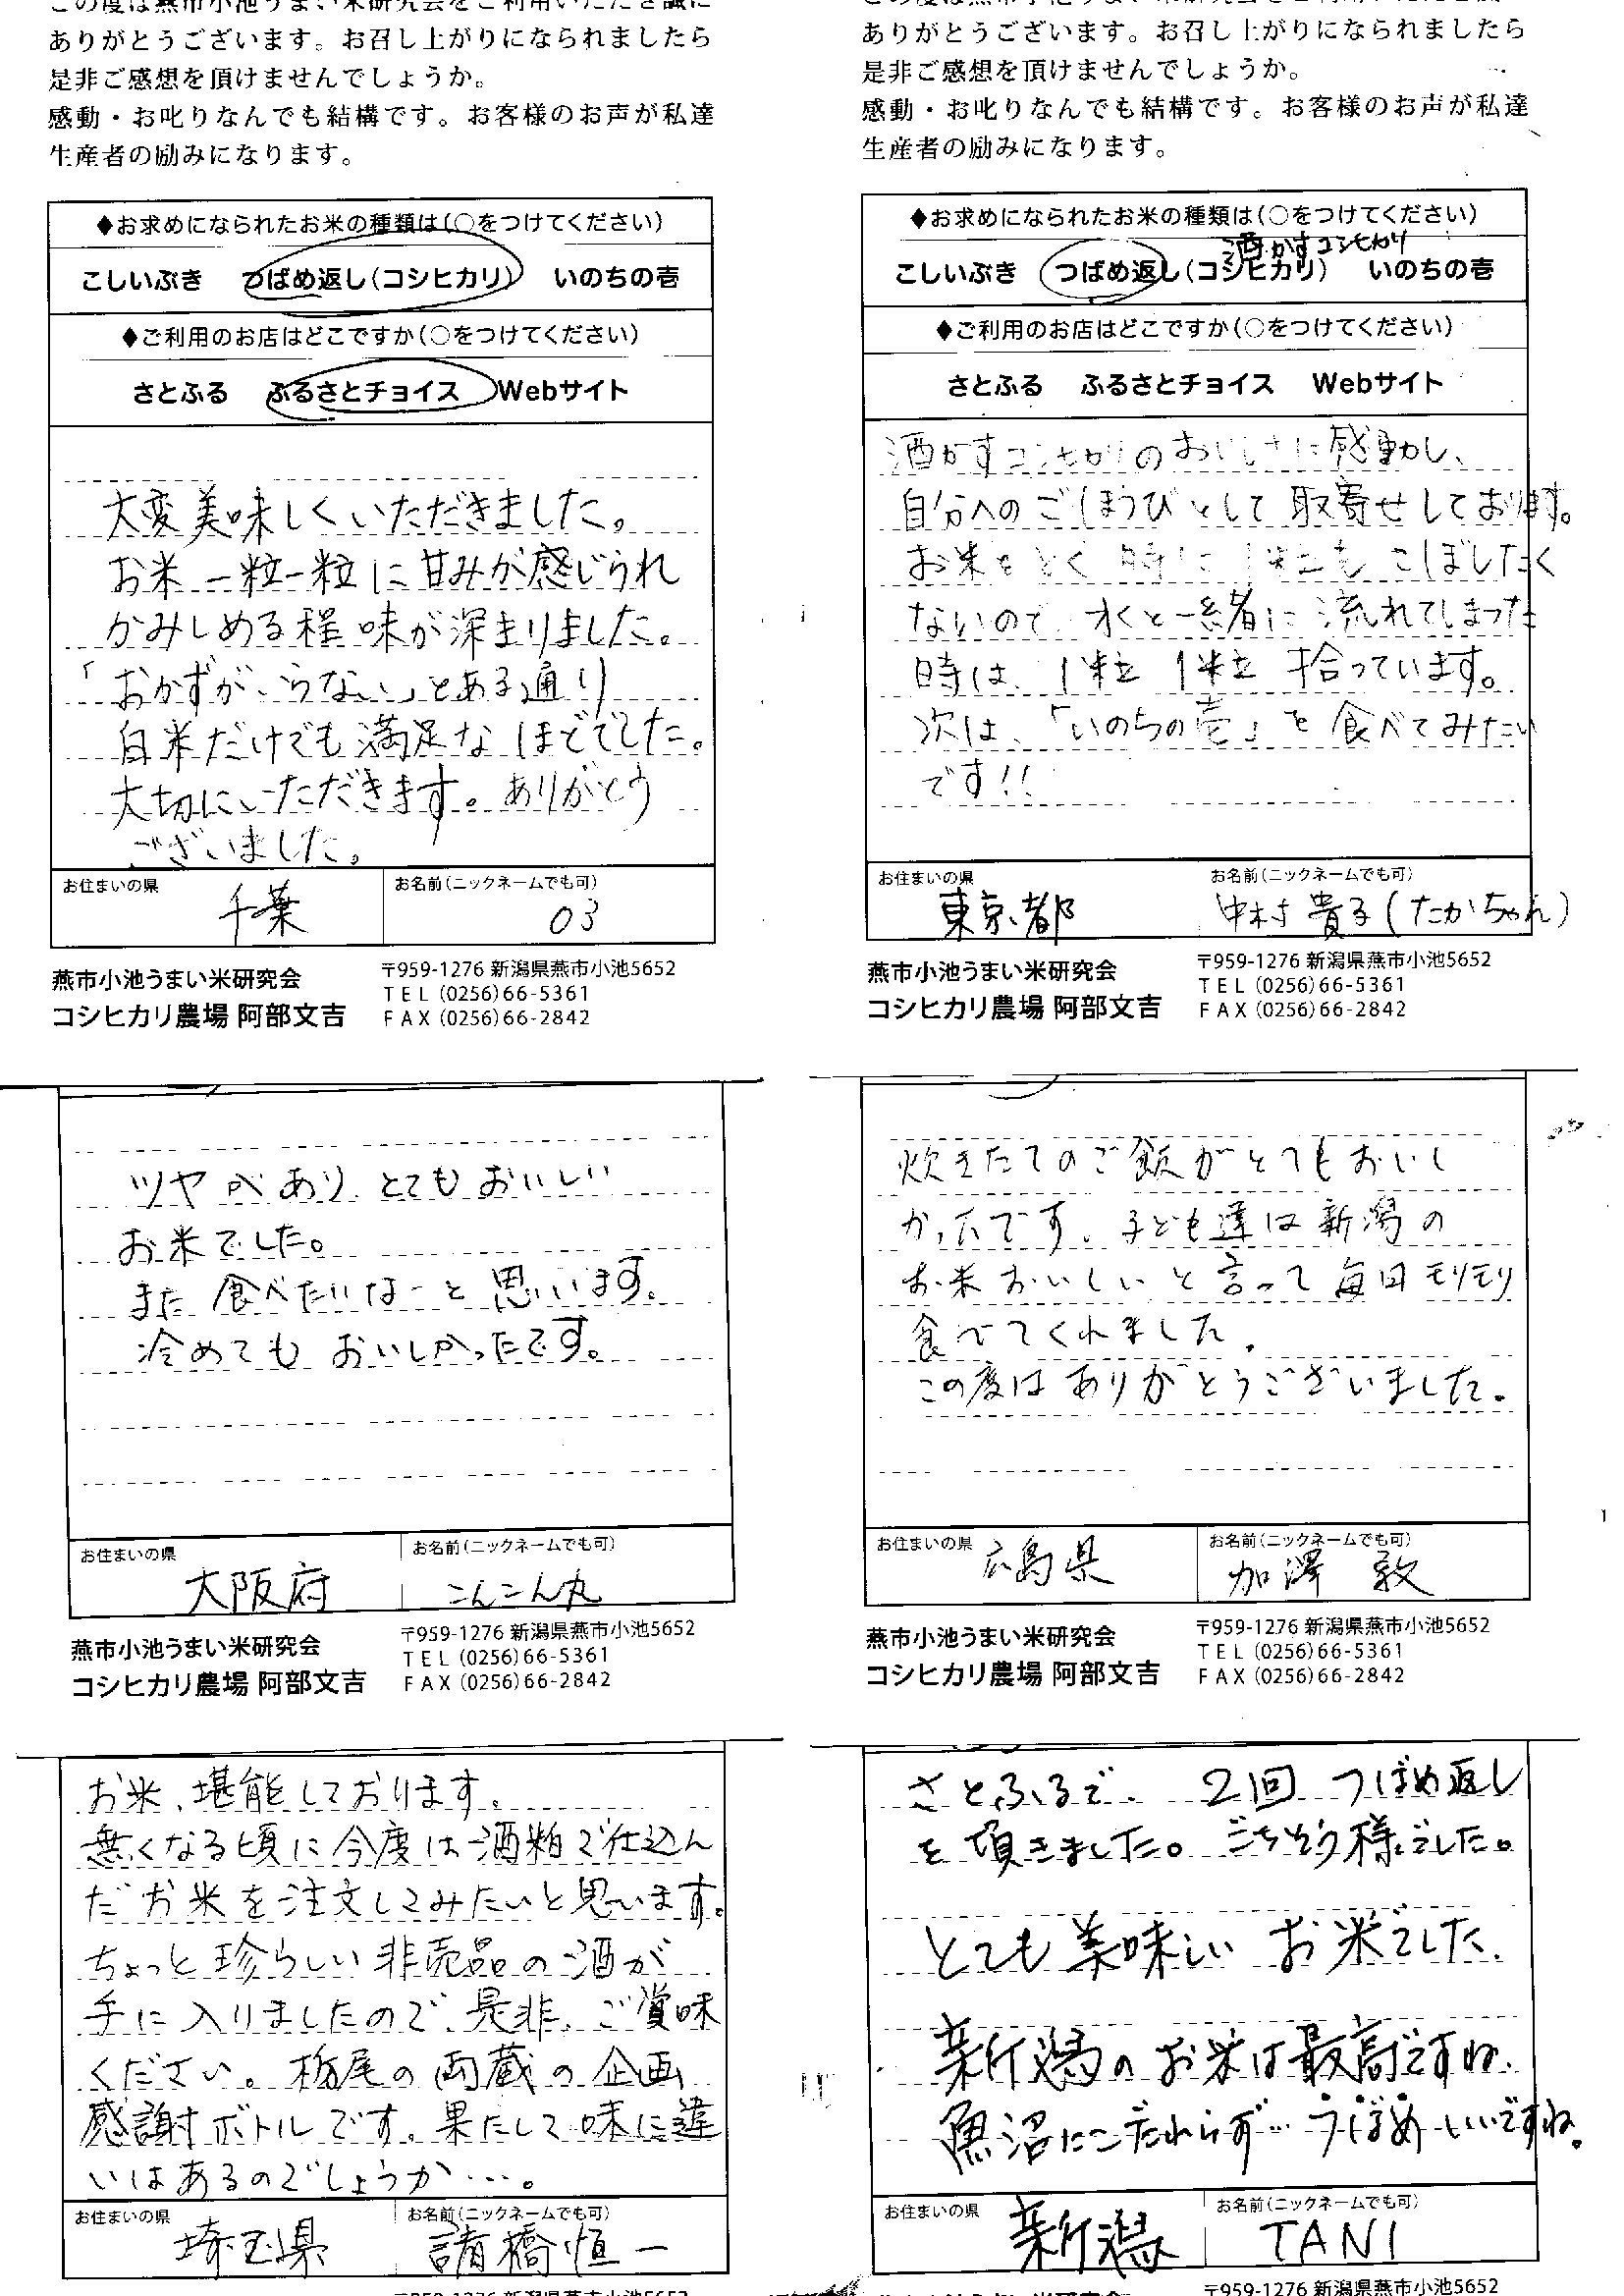 この度は燕市小池うまい米研究会をご利用いただき誠に
ありがとうございます。お召し上がりになられましたら
是非ご感想を頂けませんでしょうか。
感動・お叱りなんでも結構です。お客様のお声が私達
生産者の励みになります。
◆お求めになられたお米の種類は(○をつけてください)
こしいぶき つばめ返し(コシヒカリ) いのちの壱
◆ご利用のお店はどこですか(○をつけてください)
さとふる ふるさとチョイス Webサイト
大変美味しくいただきました。
お米一粒一粒に甘みが感じられ
かみしめる程味が深まりました。
「おかずがいらない」とある通り
白米だけでも満足なほどでした。
大切にいただきます。ありがとう
ございました。
お住まいの県 千葉
お名前(ニックネームでも可) 03
燕市小池うまい米研究会
コシヒカリ農場 阿部文吉
〒959-1276 新潟県燕市小池5652
TEL (0256)66-5361
FAX (0256)66-2842
ありがとうございます。お召し上がりになられましたら
是非ご感想を頂けませんでしょうか。
感動・お叱りなんでも結構です。お客様のお声が私達
生産者の励みになります。
◆お求めになられたお米の種類は(○をつけてください)
酒かすコシヒカリ
こしいぶき つばめ返し(コシヒカリ) いのちの壱
◆ご利用のお店はどこですか(○をつけてください)
さとふる ふるさとチョイス Webサイト
酒かすコシヒカリのおいしさに感動し、
自分へのごほうびとして取寄せしております。
お米をとぐ時に1粒もこぼしたく
ないので、水と一緒に流れてしまった
時は、1粒1粒拾っています。
次は、「いのちの壱」を食べてみたい
です!!
お住まいの県 東京都
お名前(ニックネームでも可) 中村貴子(たかちゃん)
燕市小池うまい米研究会
コシヒカリ農場 阿部文吉
〒959-1276 新潟県燕市小池5652
TEL (0256)66-5361
FAX (0256)66-2842
ツヤがありとてもおいしい
お米でした。
また食べたいなーと思います。
冷めてもおいしかったです。
お住まいの県 大阪府
お名前(ニックネームでも可) こんこん丸
燕市小池うまい米研究会
コシヒカリ農場 阿部文吉
〒959-1276 新潟県燕市小池5652
TEL (0256)66-5361
FAX (0256)66-2842
炊きたてのご飯がとてもおいし
かったです。子ども達は新潟の
お米おいしいと言って毎日モリモリ
食べてくれました。
この度はありがとうございました。
お住まいの県 広島県
お名前(ニックネームでも可) 加澤 敦
燕市小池うまい米研究会
コシヒカリ農場 阿部文吉
〒959-1276 新潟県燕市小池5652
TEL (0256)66-5361
FAX (0256)66-2842
お米、堪能しております。
無くなる頃に今度は酒粕で仕込ん
だお米を注文してみたいと思います。
ちょっと珍らしい非売品の酒が
手に入りましたので、是非、ご賞味
ください。栃尾の両蔵の企画
感謝ボトルです。果たして味に違
いはあるのでしょうか…。
お住まいの県 埼玉県
お名前(ニックネームでも可) 諸橋恒一
さとふるで、2回つばめ返し
を頂きました。ごちそう様でした。
とても美味しいお米でした。
新潟のお米は最高ですね。
魚沼にこだわらず…つばめいいですね。
お住まいの県 新潟
お名前(ニックネームでも可) TANI